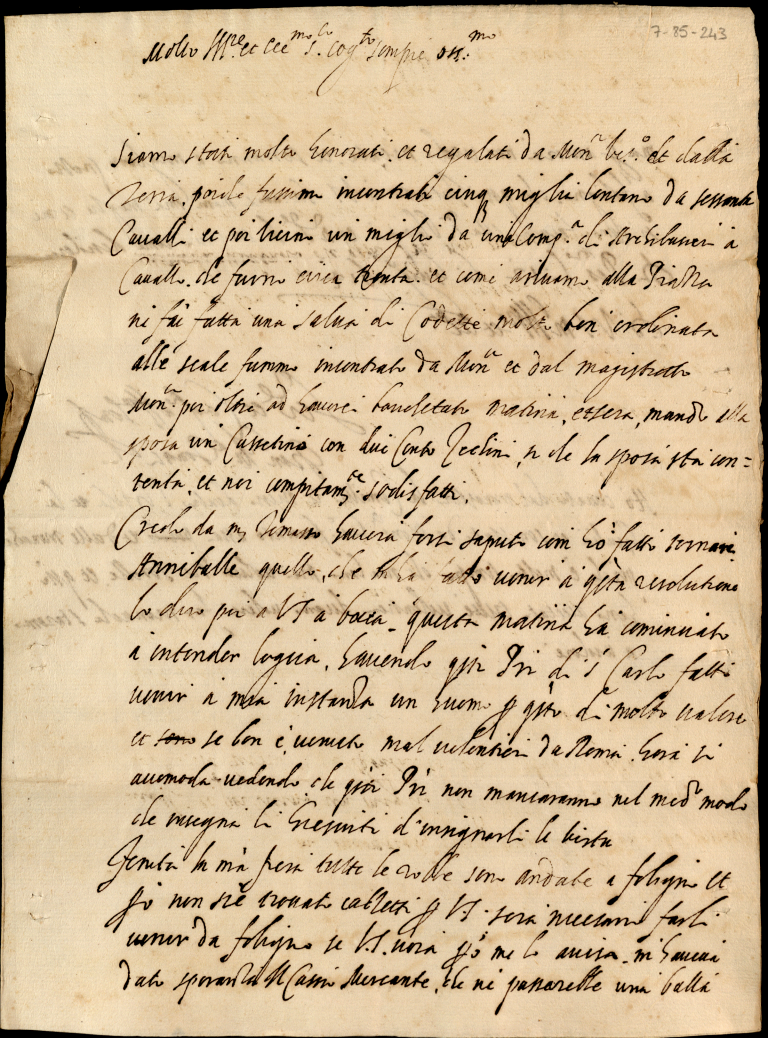 7-85-243
Molto Ill.re et ecc.mo S.r Cog.to sempre oss.mo
Siamo stati molto honorati et regalati da Mon.r Ves.o et dalla
Terra, poiche fussimo incontrati cinq miglia lontano da sessanta
Cavalli et poi vicini un miglio da una Comp.a di Archibusieri à
Cavallo che furno circa trenta et come arivamo alla Piazza
ni fù fatta una salva di Codette molto ben ordinata
alle scale fummo incontrati da Mon.r et dal magistrato
Mon.r poi oltre ad haverci banchettato matina, et sera, mandò alla
sposa un Cassetino con due Cento Zecchini, si che la sposa sta con=
tenta, et noi compitam.te sodisfatti.
Credo da m Tomasso haverà forsi saputo com hò fatto tornare
Anniballe quello, che m'hà fatto venir à q.sta resolutione
lo dirò poi a VS à bocca. questa matina hà cominciato
à intender logica, havendo q.sti Pri di S Carlo fatto
venir à mia instanza un huomo p q.sto di molto valore
et se ben è venuto mal volentieri da Roma hora si
accomoda vedendo che q.sti Pri non mancaranno nel med.o modo
che insegna li Giesuiti d'insignarli le
finita la fiera tutte le robbe son andate a foligno et
p.ò non si è trovato p VS. sarà necessario farli
venir da foligno se V.S. vorà p.ò me lo avisa. m haveva
dato speranza Mercante, che ni passarebbe una balla